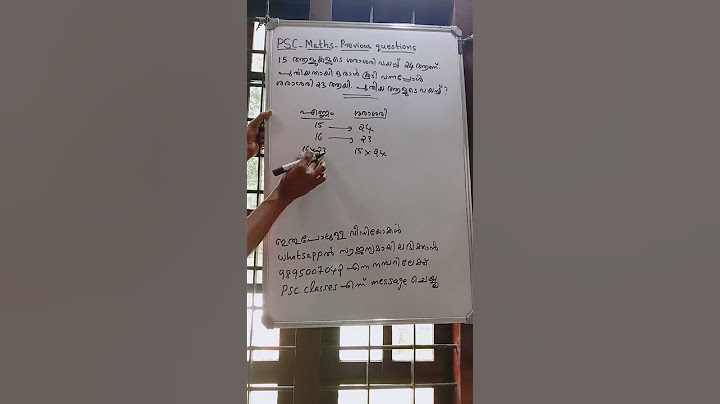 PSC - Maths - Previous questions
15 ആളുകളുടെ ശരാശരി വയസ്സ് 24 ആണ്.
പുതിയതായി ഒരാൾ കൂടി വന്നപ്പോൾ
ശരാശരി 23 ആയി. പുതിയ ആളുടെ വയസ്സ്?
എണ്ണം ശരാശരി
15 → 24
16 → 23
16 x 23 15 x 24
ഇതുപോലുള്ള വീഡിയോകൾ
whatsappൽ സൗജന്യമായി ലഭിക്കാൻ
9895007042 എന്ന നമ്പറിലേക്ക്
PSC classes എന്ന് message ചെയ്യൂ